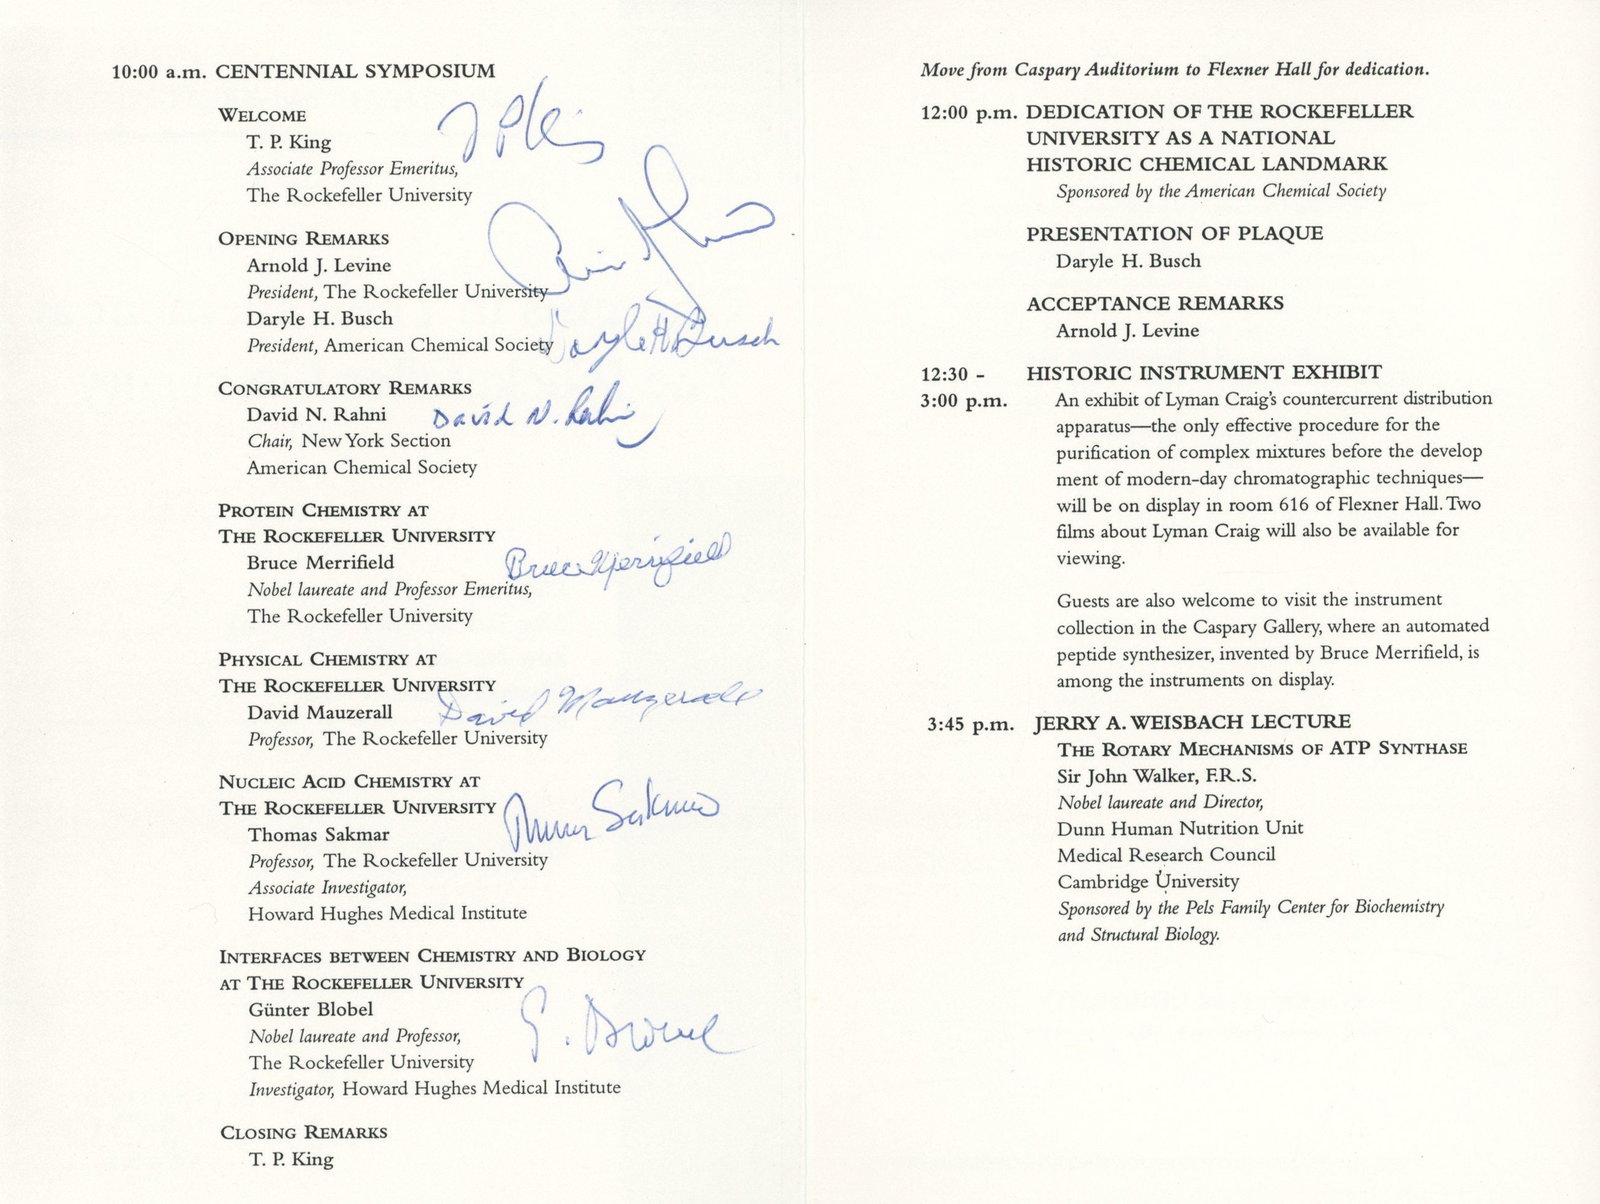 10:00 a.m. CENTENNIAL SYMPOSIUM
WELCOME
T. P. King
T P King
Associate Professor Emeritus,
The Rockefeller University
OPENING REMARKS
Arnold J. Levine
President, The Rockefeller University
Daryle H. Busch
Daryle H. Busch
President, American Chemical Society
CONGRATULATORY REMARKS
David N. Rahni
David N. Rahni
Chair, New York Section
American Chemical Society
PROTEIN CHEMISTRY AT
THE ROCKEFELLER UNIVERSITY
Bruce Merrifield
Bruce Merrifield
Nobel laureate and Professor Emeritus,
The Rockefeller University
PHYSICAL CHEMISTRY AT
THE ROCKEFELLER UNIVERSITY
David Mauzerall
David Mauzerall
Professor, The Rockefeller University
NUCLEIC ACID CHEMISTRY AT
THE ROCKEFELLER UNIVERSITY
Thomas Sakmar
Thomas Sakmar
Professor, The Rockefeller University
Associate Investigator,
Howard Hughes Medical Institute
INTERFACES BETWEEN CHEMISTRY AND BIOLOGY
AT THE ROCKEFELLER UNIVERSITY
Günter Blobel
G. Blobel
Nobel laureate and Professor,
The Rockefeller University
Investigator, Howard Hughes Medical Institute
CLOSING REMARKS
T. P. King
Move from Caspary Auditorium to Flexner Hall for dedication.
12:00 p.m. DEDICATION OF THE ROCKEFELLER
UNIVERSITY AS A NATIONAL
HISTORIC CHEMICAL LANDMARK
Sponsored by the American Chemical Society
PRESENTATION OF PLAQUE
Daryle H. Busch
ACCEPTANCE REMARKS
Arnold J. Levine
12:30 - HISTORIC INSTRUMENT EXHIBIT
3:00 p.m. An exhibit of Lyman Craig's countercurrent distribution
apparatus—the only effective procedure for the
purification of complex mixtures before the develop
ment of modern-day chromatographic techniques—
will be on display in room 616 of Flexner Hall. Two
films about Lyman Craig will also be available for
viewing.
Guests are also welcome to visit the instrument
collection in the Caspary Gallery, where an automated
peptide synthesizer, invented by Bruce Merrifield, is
among the instruments on display.
3:45 p.m. JERRY A. WEISBACH LECTURE
THE ROTARY MECHANISMS OF ATP SYNTHASE
Sir John Walker, F.R.S.
Nobel laureate and Director,
Dunn Human Nutrition Unit
Medical Research Council
Cambridge University
Sponsored by the Pels Family Center for Biochemistry
and Structural Biology.